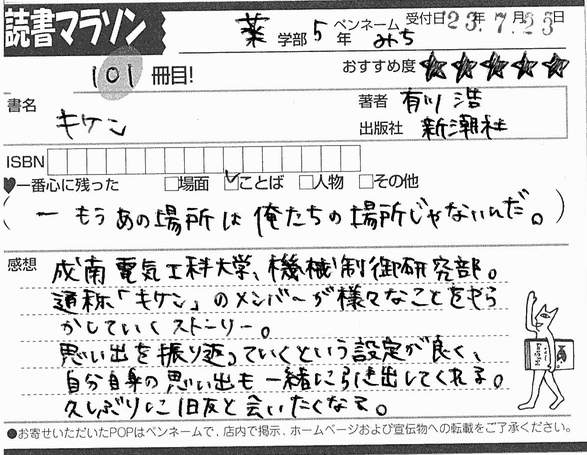 読書マラソン
薬 学部 5 年 ペンネーム みち 受付日 23年 7月 23日
101 冊目! おすすめ度 ★★★★★
書名 キケン
著者 有川 浩
出版社 新潮社
ISBN
♥一番心に残った □場面 ☑ことば □人物 □その他
( ー もう あの 場所 は 俺たちの 場所じゃないんだ。)
感想 成南電気工科大学、機械制御研究部。
通称「キケン」のメンバーが様々なことをやら
かしていくストーリー。
思い出を振り返っていくという設定が良く、
自分自身の思い出も一緒に引き出してくれる。
久しぶりに旧友と会いたくなる。
●お寄せいただいたPOPはペンネームで、店内で掲示、ホームページおよび宣伝物への転載をご了承ください。